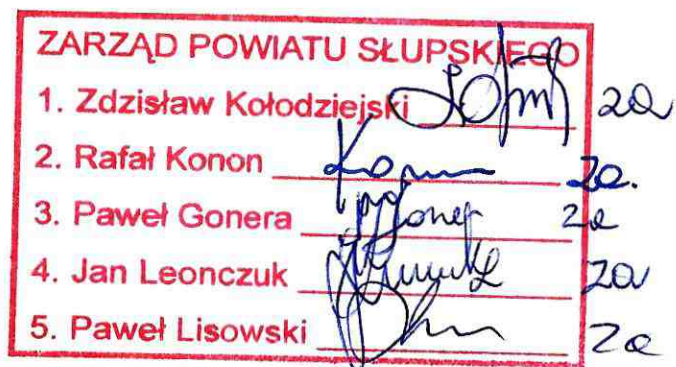 ZARZĄD POWIATU SŁUPSKIEGO
1. Zdzisław Kołodziejski za
2. Rafał Konon za.
3. Paweł Gonera za
4. Jan Leonczuk za
5. Paweł Lisowski za